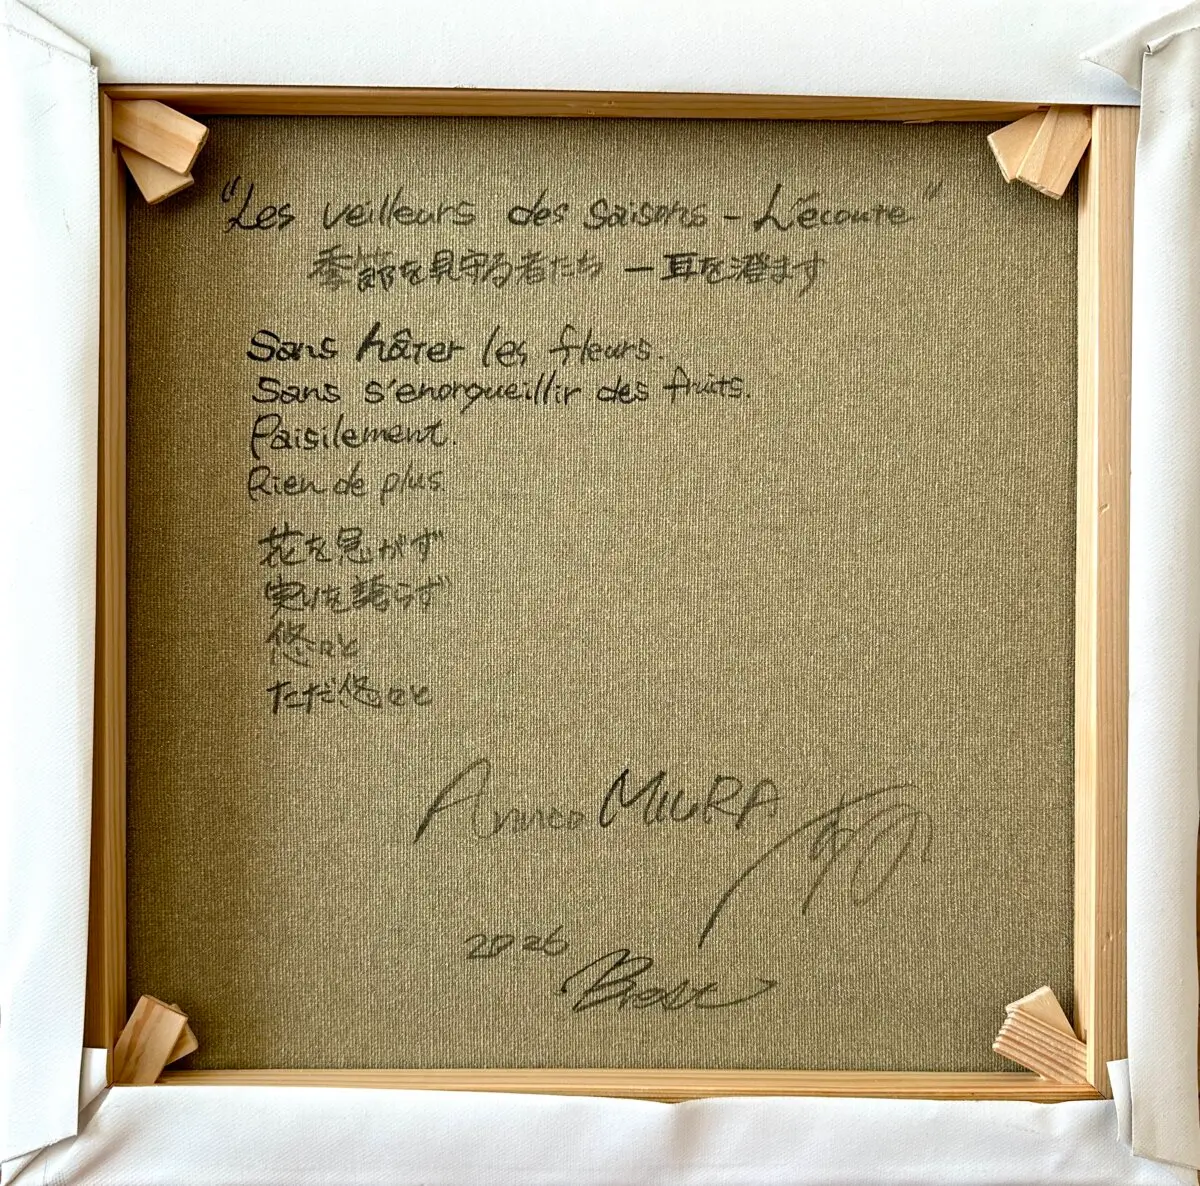 "Les veilleurs des saisons - L'écoute"
季節を見守る者たち ー耳を澄ます
Sans hâter les fleurs.
Sans s'enorgueillir des fruits.
Paisilement.
Rien de plus.
花を急がず
実りを誇らず
悠々と
ただ悠々と
Anneo MIURA
2026
Brest